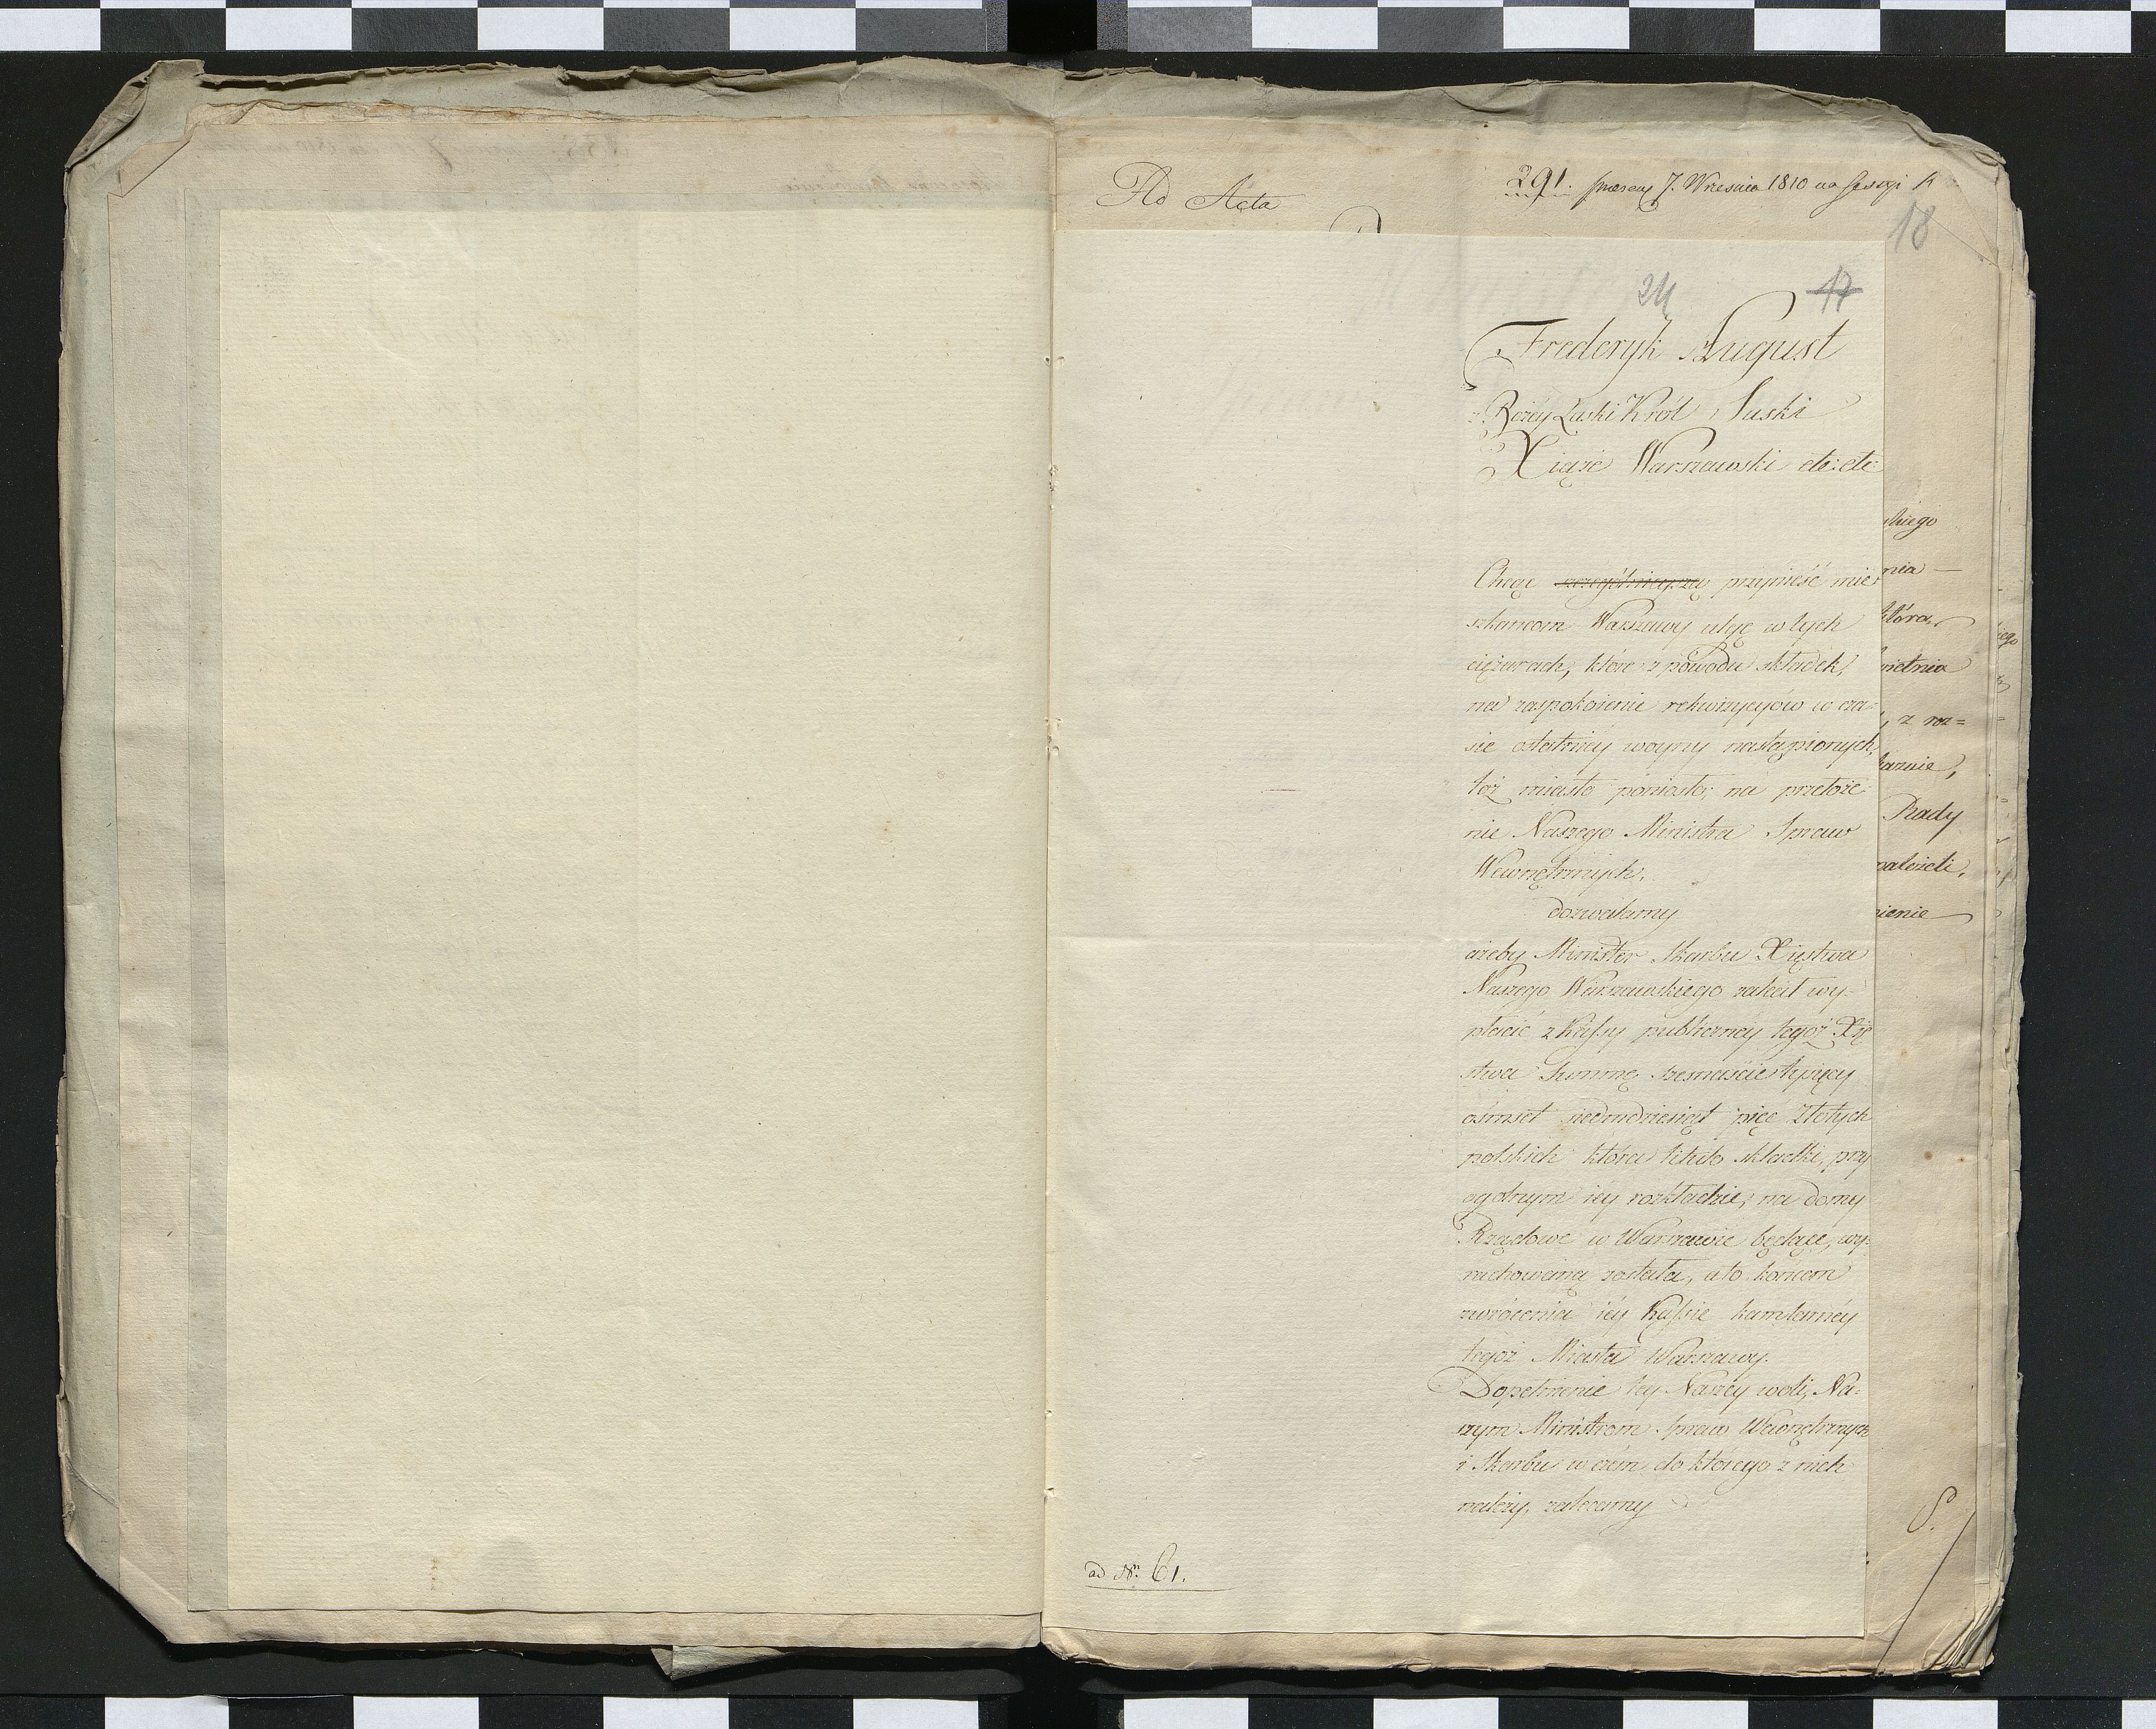 Ad Acta
291. praesent 7. Wrzesnia 1810 na Sessyi
18
24 17
Fryderyk August
z Bożéy Łaski Król Saski
Xiąże Warszawski etc: etc:
Chcąc przynieść mie
szkancom Warszawy ulgę w tych
ciężarach, które z powodu składek,
na zaspokoienie rekwizycyów w cza-
sie ostatniey woyny nastąpionych,
toż miasto poniosło; na przełoże
nie Naszego Ministra Spraw
Wewnętrznych.
dozwalamy
ażeby Minister Skarbu Xięstwa
Naszego Warszawskiego zakał wy-
płacić z Kassy publiczney tegoż Xię
stwa Summę szesnaście tysięcy
ośmset siedmdziesiąt pięć Złotych
polskich która tytuło składki, przy
ogolnym iéy rozkładzie, na domy
Rządowe w Warszawie będące, wy-
rachowaną została, a to końcem
zwrócenia iéy Kassie kamlarnéy
tegoż Miasta Warszawy.
Dopełnienie téy Naszéy woli, Na-
szym Ministrom Spraw Wewnętrznych
i Skarbu w czém do którego z nich
należy, zalecamy
ad Nr. 61.
skiego
nia
która
wietnia
, z roz=
Rady
należeli,
nienie